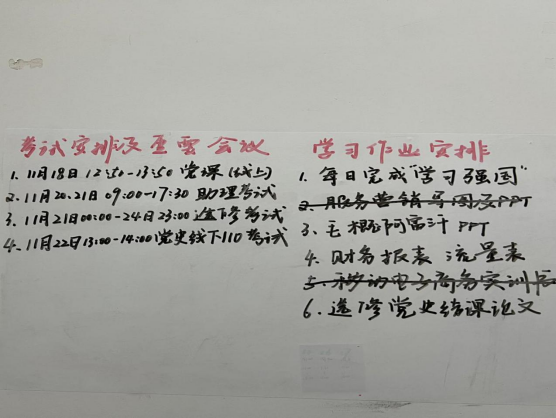 考试安排及重要会议
1. 11月18日 12:50-13:50 党课(线上)
2. 11月20.21日 09:00-17:30 助理考试
3. 11月21日00:00-24日23:00 选修考试
4. 11月22日13:00-14:00 党史线下110考试
学习作业安排
1. 每日完成"学习强国"
2. 服务营销 PPT
3. 毛概阿富汗 PPT
4. 财务报表 流量表
5. 移动电子商务实训
6. 选修党史结课论文